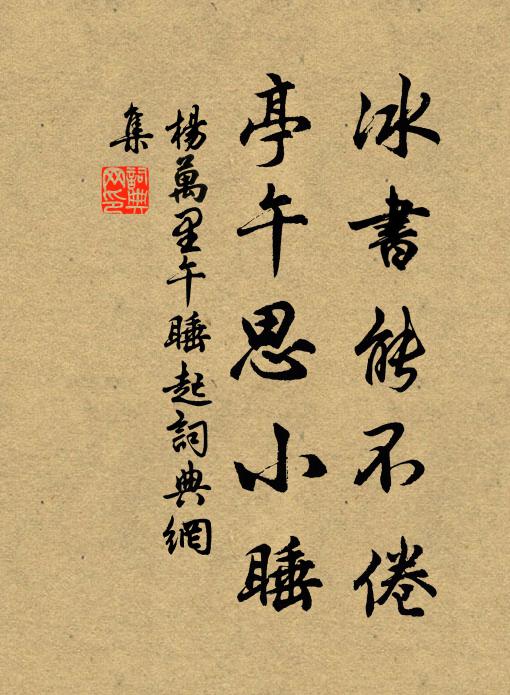 冰書能不倦
亭午思小睡
楊萬里午睡起詞典網
集
詞典
网印